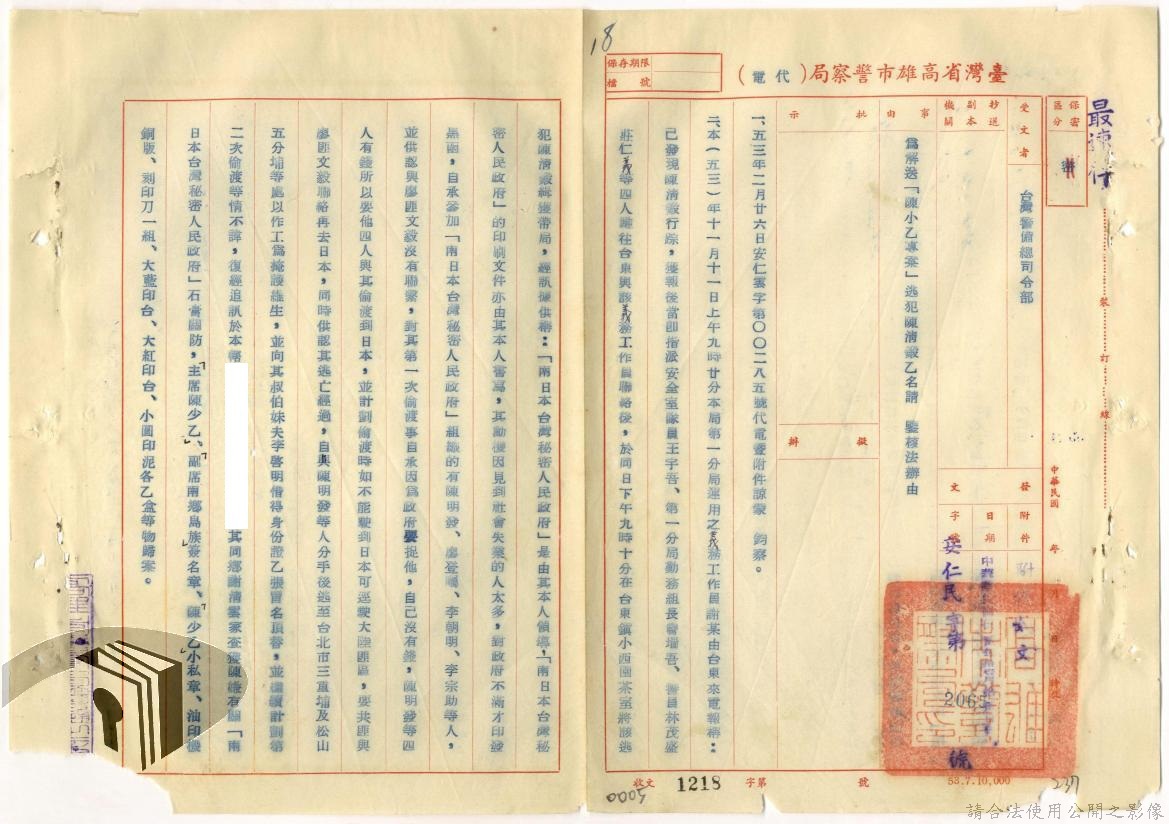 18
保存期限
檔號
臺灣省高雄市警察局（代電）
保密區分
密
最速件
裝訂線
受文者
台灣警備總司令部
抄送副本機關
事由
為解送「陳小乙專案」逃犯陳清毅乙名請 鑒核法辦由
批示
擬辦
發文
附件
日期
字號
中華民國
安仁民字第
2065
號
一、五三年二月廿六日安仁雲字第〇〇二八五號代電暨附件諒蒙 鈞察。
二、本（五三）年十一月十一日上午九時廿分本局第一分局運用之義務工作員謝某由台東來電報稱：
已發現陳清毅行踪，獲報後當即指派安全室隊員王宇吾、第一分局勤務組長曾增吾、警員林茂盛
莊仁義等四人趕往台東與該義務工作員聯絡後，於同日下午九時十分在台東鎮小西園茶室將該逃
犯陳清毅緝獲帶局，經訊據供稱：「南日本台灣秘密人民政府」是由其本人領導，「南日本台灣秘
密人民政府」的印刷文件亦由其本人書寫，其動機因見到社會失業的人太多，對政府不滿才印發
黑函，自承參加「南日本台灣秘密人民政府」組織的有陳明發、廖登囑、李朝明、李宗助等人，
並供認與廖匪文毅沒有聯繫，對其第一次偷渡事自承因為政府要捉他，自己沒有錢，陳明發等四
人有錢所以要他四人與其偷渡到日本，並計劃偷渡時如不能駛到日本可逕駛大陸匪區，要共匪與
廖匪文毅聯絡再去日本，同時供認其逃亡經過，自與陳明發等人分手後逃至台北市三重埔及松山
五分埔等處以作工為掩護維生，並向其叔伯妹夫李啓明借得身份證乙張冒名頂替，並繼續計劃第
二次偷渡等情不諱，復經追訊於本轄
其同鄉謝清雲家查獲陳嫌有關「南
日本台灣秘密人民政府」石膏關防，「主席陳少乙」、「副席南鄉島族簽」名章、「陳少乙」小私章、油印機
鋼版、刻印刀一組、大藍印台、大紅印台、小圓印泥各乙盒等物歸案。
收文
1218
字第
號
53.7.10,000
0005
237
請合法使用公開之影像